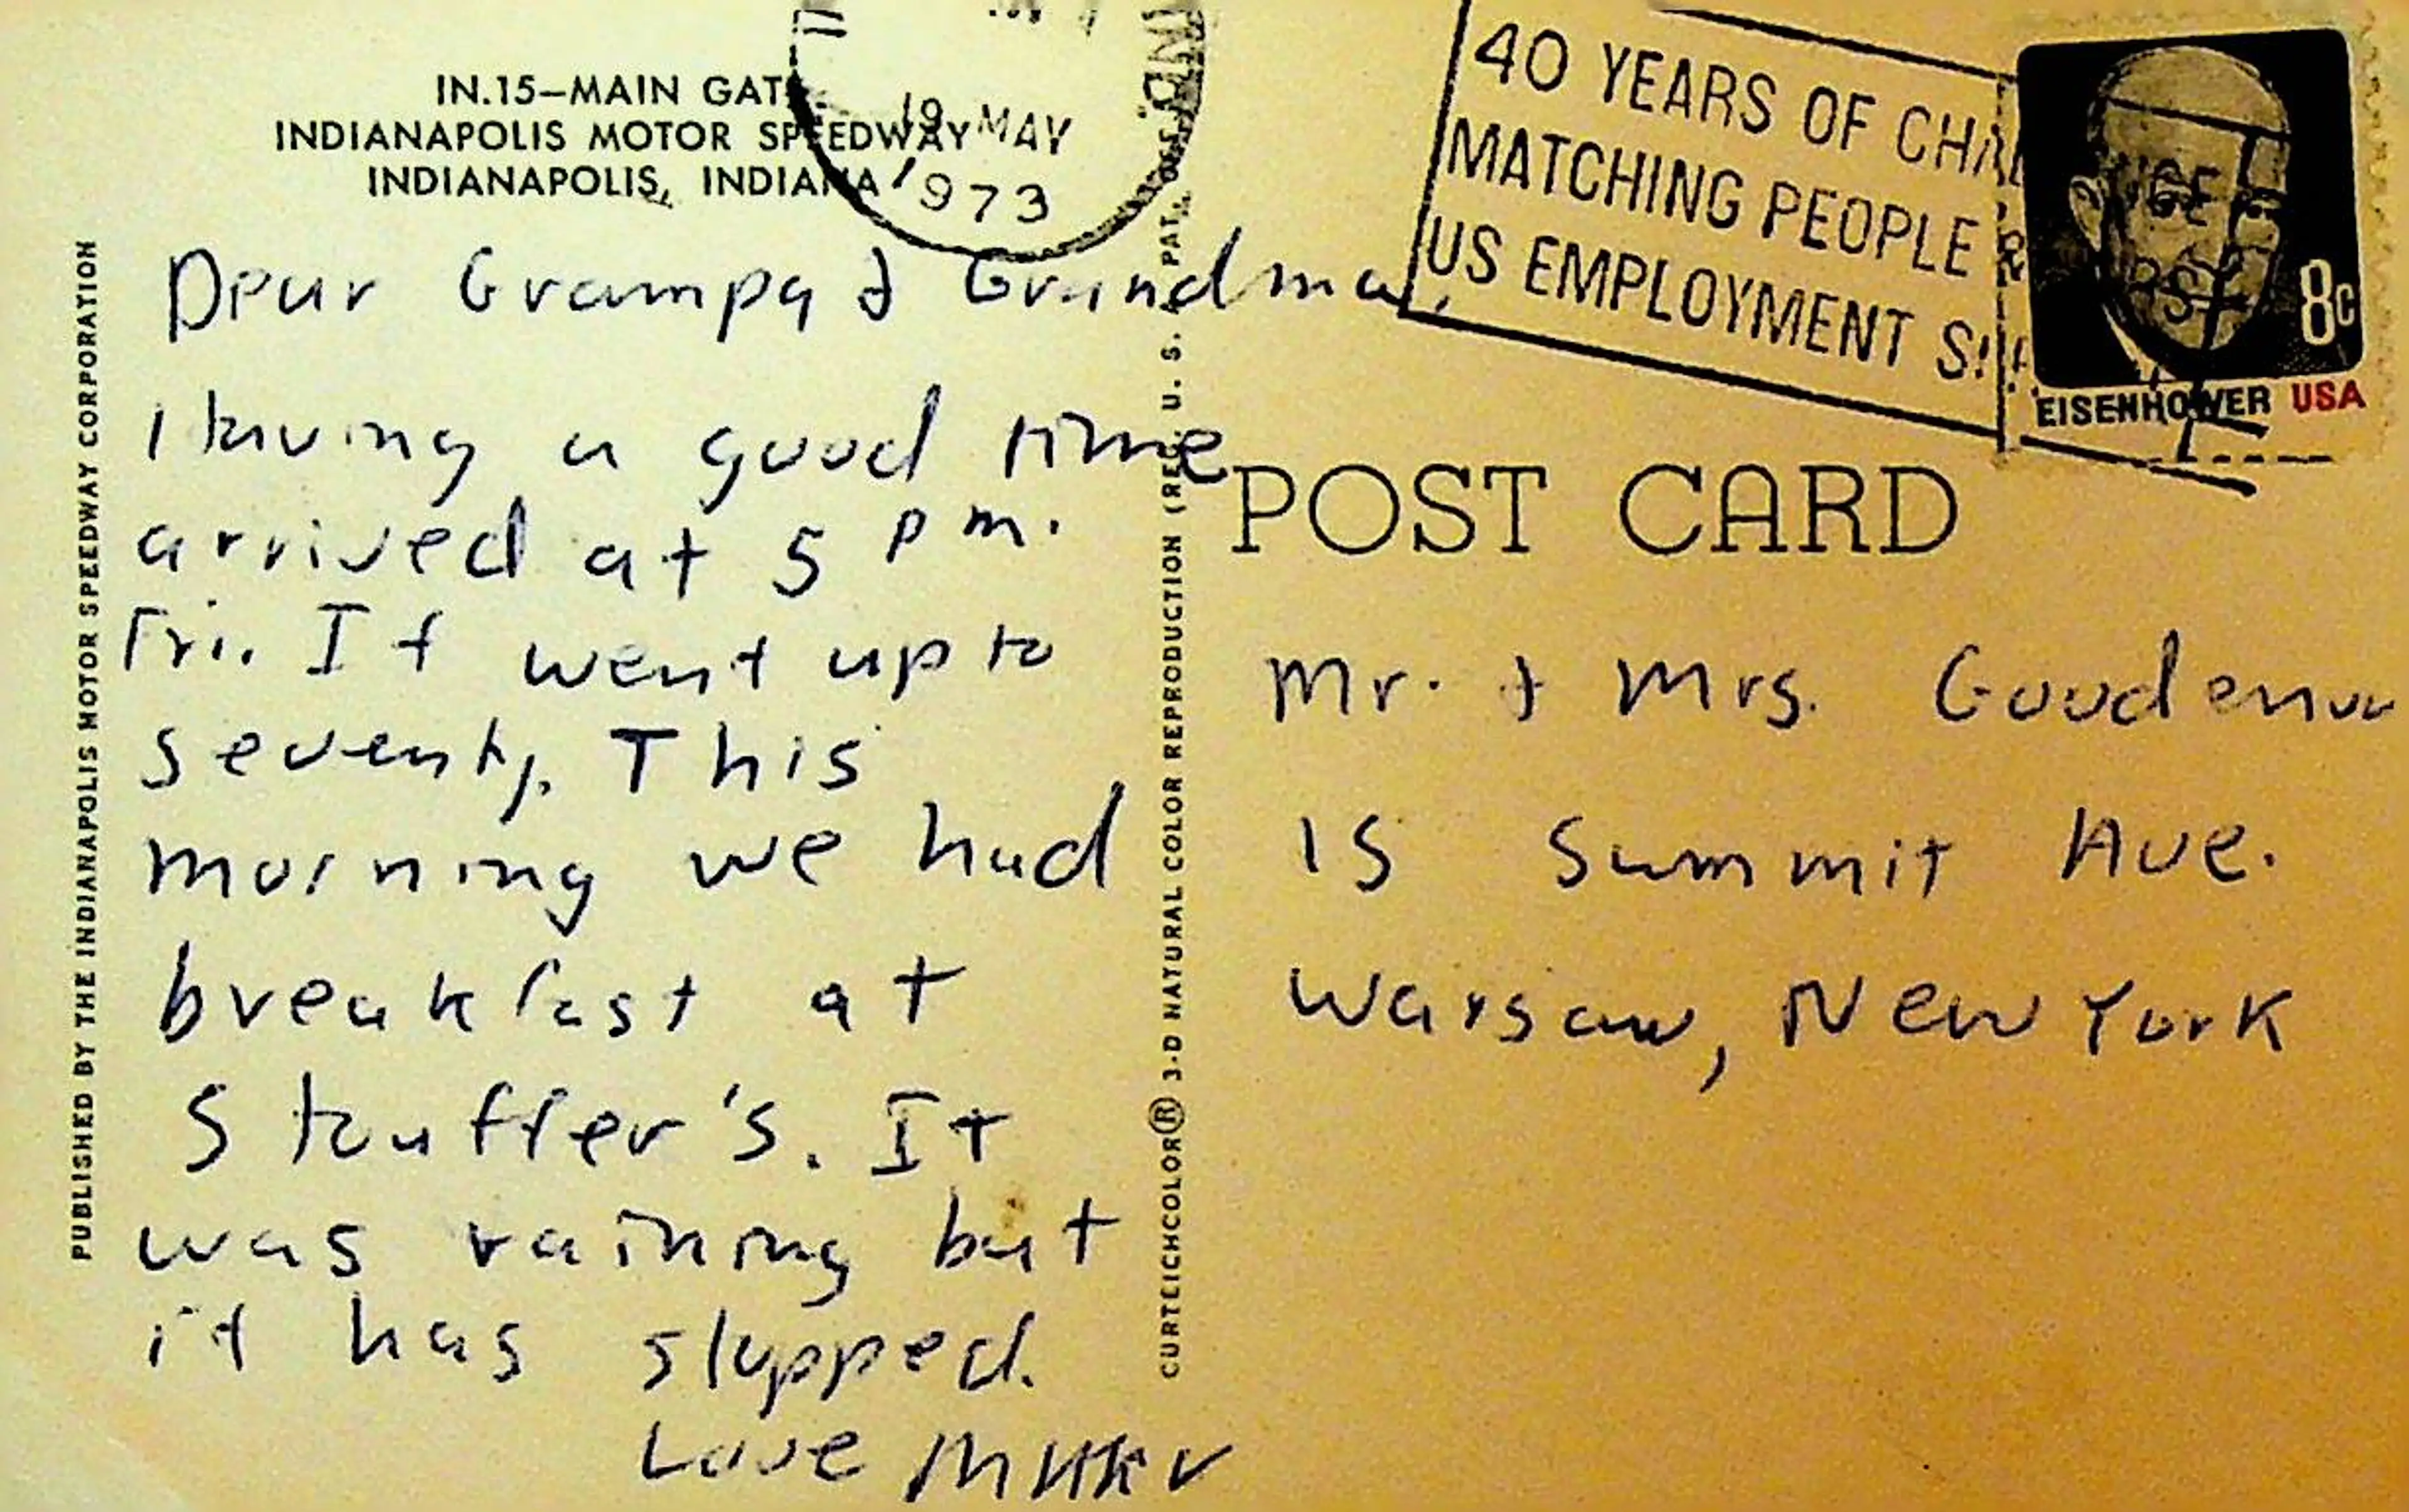 IN.15—MAIN GATE
INDIANAPOLIS MOTOR SPEEDWAY
INDIANAPOLIS, INDIANA
19 MAY
1973
40 YEARS OF
MATCHING PEOPLE &
US EMPLOYMENT
8c
EISENHOWER USA
PUBLISHED BY THE INDIANAPOLIS MOTOR SPEEDWAY CORPORATION
Dear Grampa & Grandma,
I having a good time
arrived at 5 pm.
Fri. It went up to
seventy. This
morning we had
breakfast at
Stouffer's. It
was raining but
it has stopped.
Love
CURTEICHCOLOR® 3-D NATURAL COLOR REPRODUCTION (REG. U. S. PAT.
POST CARD
Mr. & Mrs.
15 Summit Ave.
Warsaw, New York